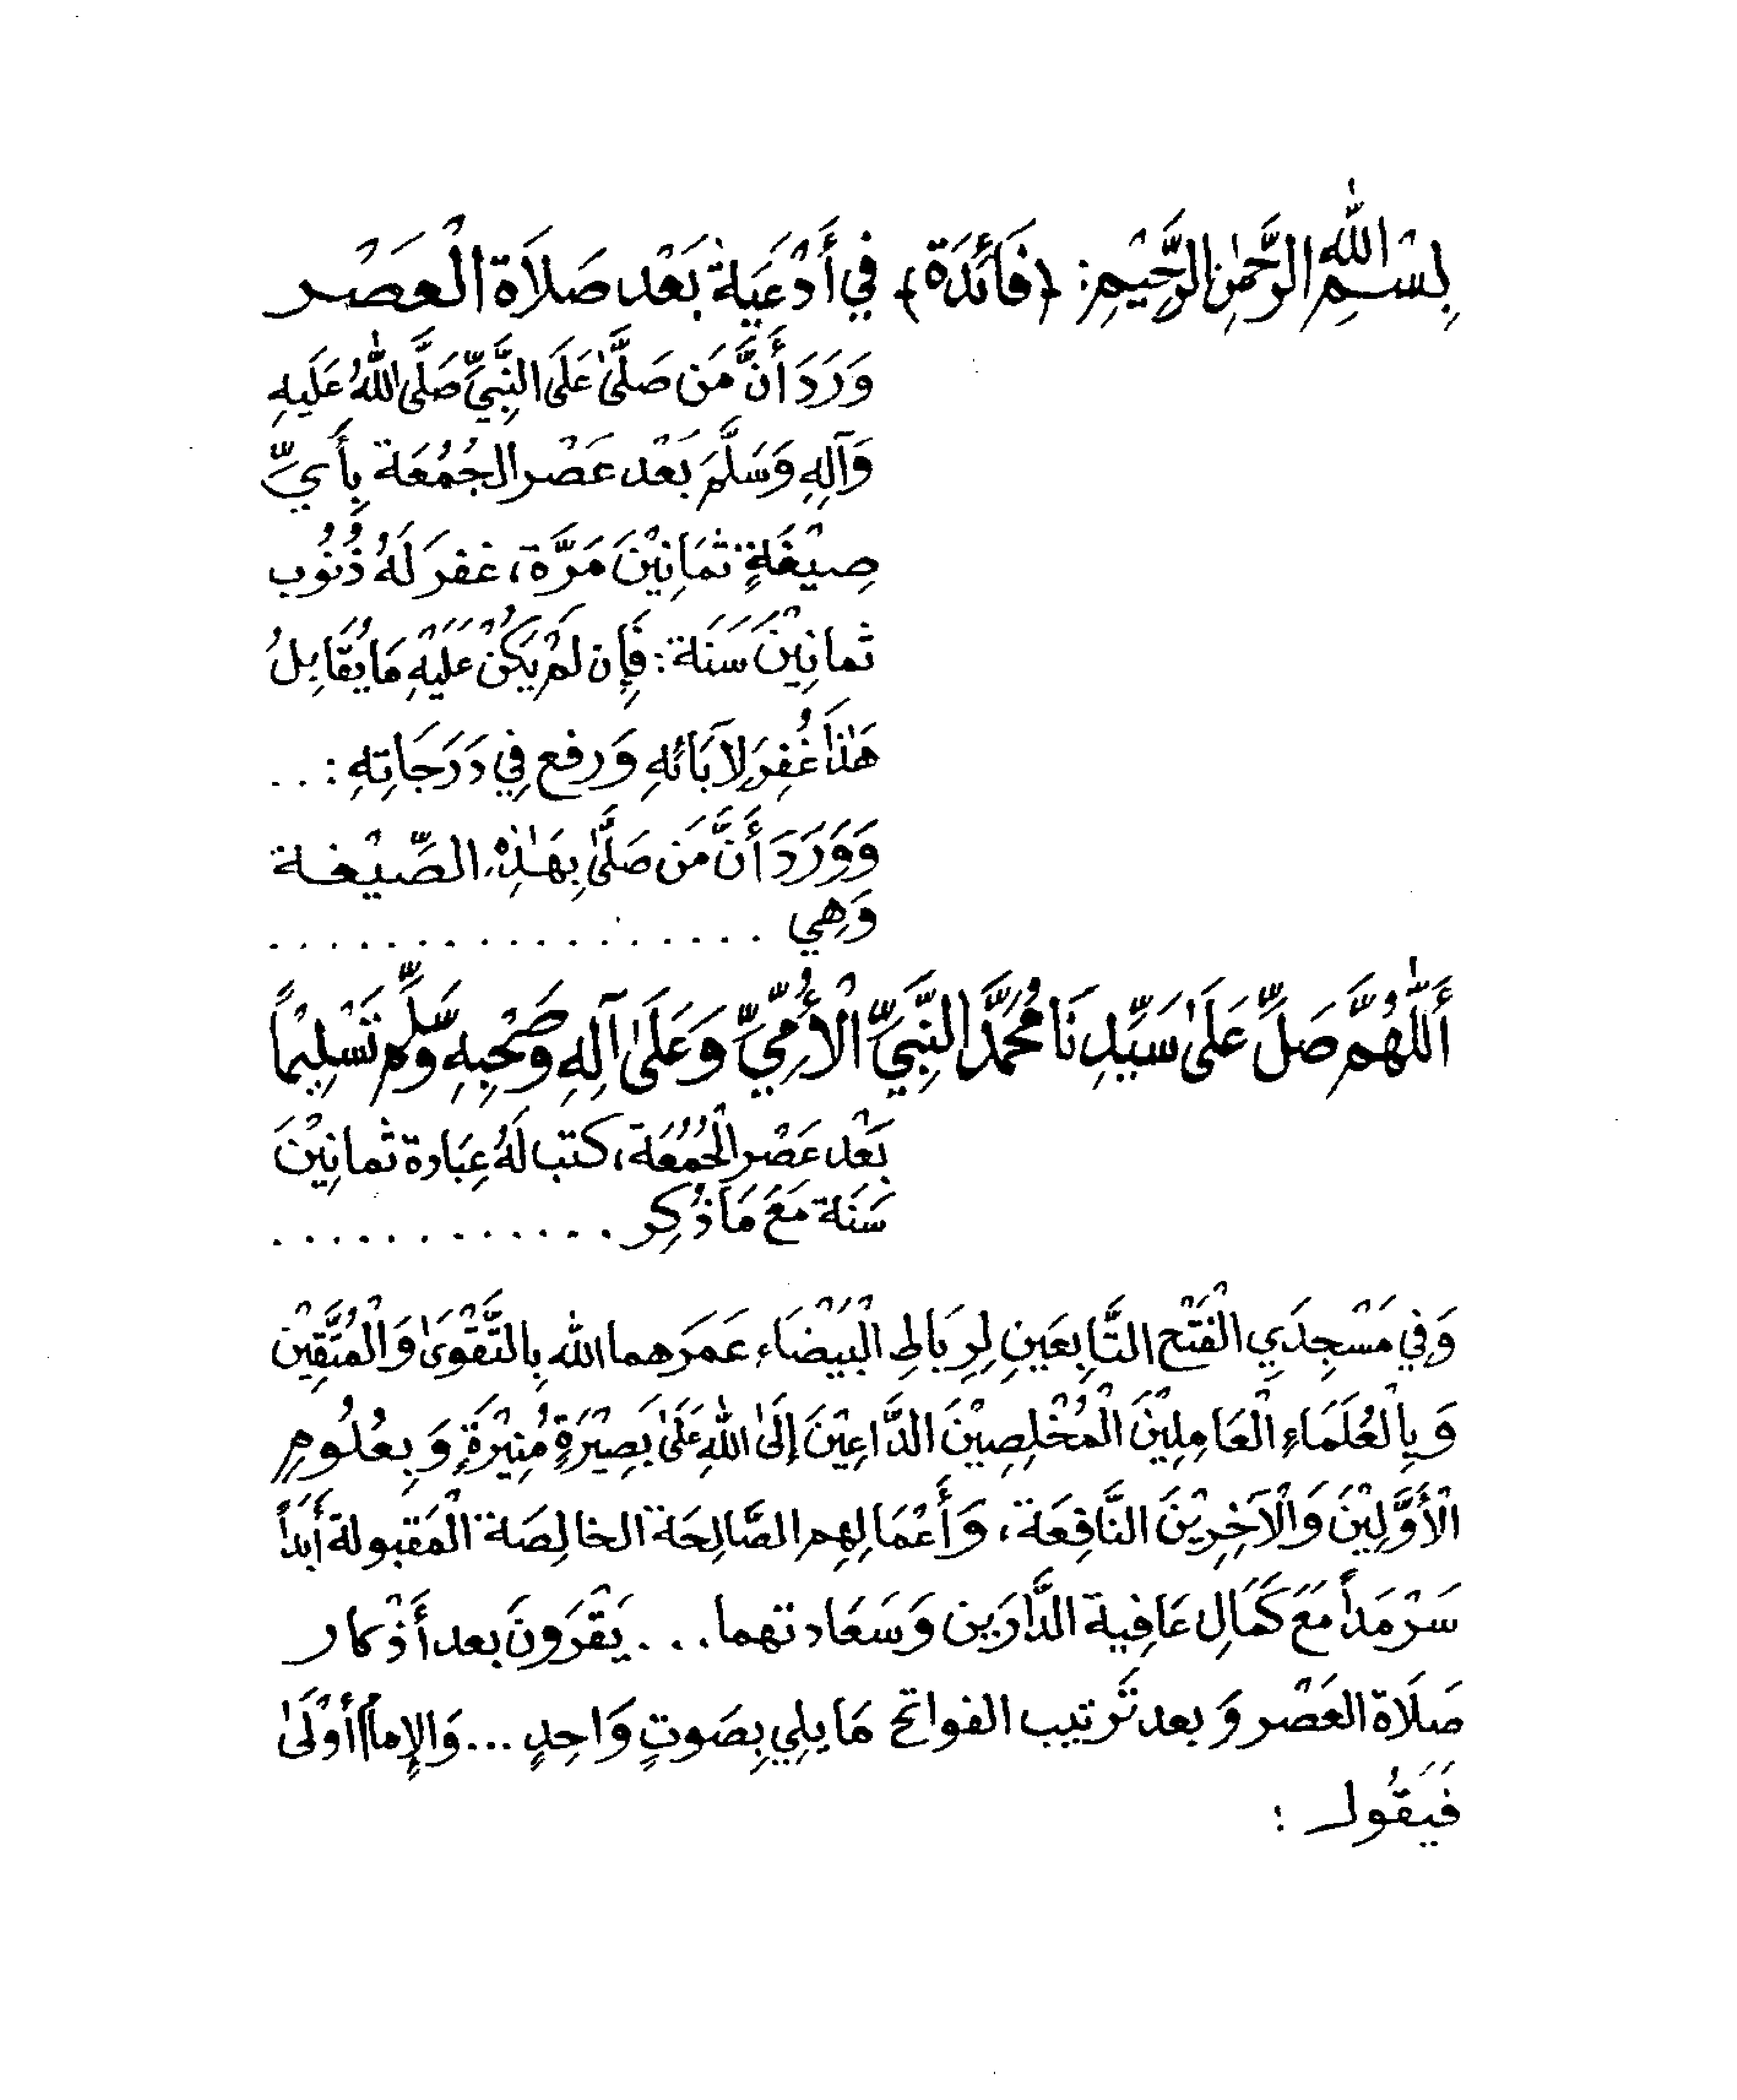 بِسْمِ اللهِ الرَّحْمٰنِ الرَّحِيْمِ : ﴿فَائِدَة﴾ فِي أَدْعِيَةْ بَعْد صَلَاة الْعَصْر
وَرَدَ أَنَّ مَن صَلَّىٰ عَلَى النَّبِيِّ صَلَّى اللهُ عَلَيهِ
وَآلِهِ وَسَلَّمَ بَعْد عَصْر الجُمُعَة بِأَيِّ
صِيْغَةٍ ثمَانِيْنَ مَرَّة، غفرَ لَهُ ذُنُوب
ثمانِيْنَ سَنَة : فَإِن لَمْ يَكُنْ عَلَيْهِ مَا يُقَابِلُ
هَٰذَا غُفِرَ لِآبَائهِ وَرفع فِي دَرَجَاتِهِ : . .
وَوَرَدَ أَنَّ مَن صَلَّىٰ بِهَٰذِهِ الصِّيْغة
وَهِي . . . . . . . . . . . . . . . . .
أَللّٰهُمَّ صَلِّ عَلَىٰ سَيِّدِنَا مُحَمَّدٍ النَّبِيِّ الْأُمِّيِّ وَعَلَىٰ آلِهِ وَصَحْبِهِ وَسَلِّم تَسْلِيْماً
بَعْد عَصْر الْجُمُعَة، كتب لَهُ عِبَادة ثمانِيْنَ
سَنَة مَعَ مَا ذُكِر . . . . . . . . . . . .
وَفِي مَسْجِدَيِ الْفَتْح التَّابِعَينِ لِرِبَاطِ الْبَيْضَاء عَمَرَهما الله بِالتَّقْوَىٰ وَالْمُتَّقِيْن
وَبِالْعُلَمَاءِ الْعَامِلِيْنَ الْمُخْلِصِيْنَ الدَّاعِيْنَ إِلَىٰ اللهِ عَلَىٰ بَصِيْرَةٍ مُنِيْرَةٍ وَبِعُلُومِ
الْأَوَّلِيْنَ وَالْآخِرِيْنَ النَّافِعَة، وَأَعْمَالِهِم الصَّالِحَة الخالِصَة الْمَقبولة أَبَداً
سَرْمَداً مَعَ كَمَالِ عَافِية الدَّارَين وَسَعَادتهما . . . يَقْرَونَ بعد أَذْكار
صَلَاة العَصْر وَبعد تَرتيب الفواتح مَا يلِي بِصَوتٍ وَاحِدٍ ... وَالإِمامُ أَوْلَىٰ
فَيَقُول :